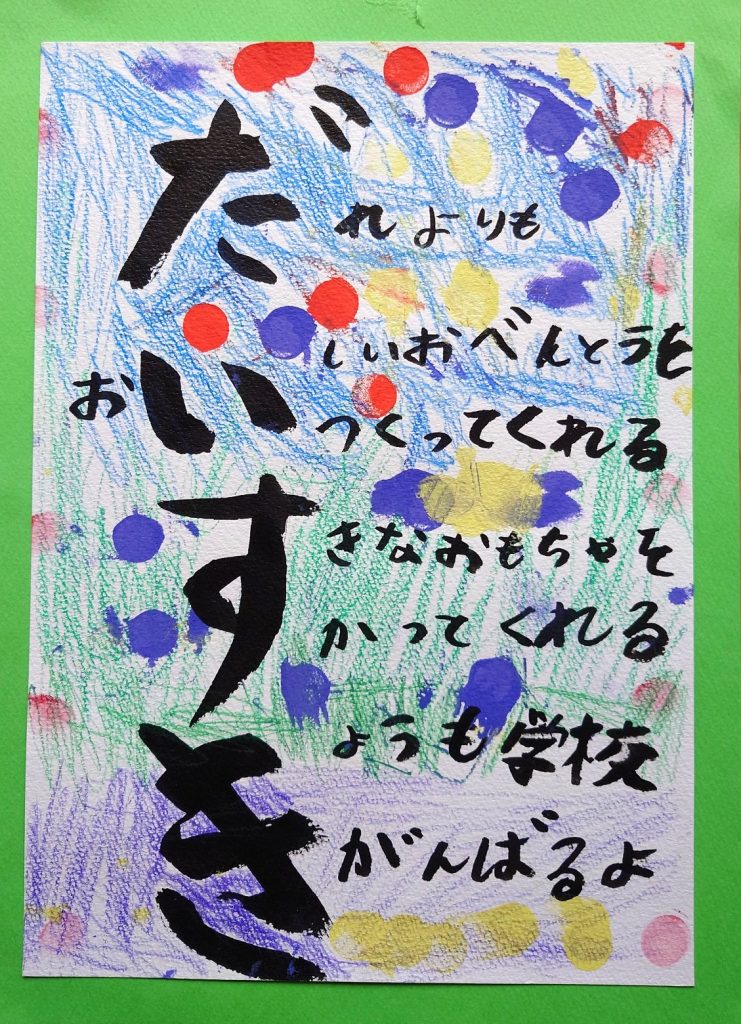 だれよりも
おいしいおべんとうを
つくってくれる
すきなおもちゃを
かってくれる
きょうも学校
がんばるよ